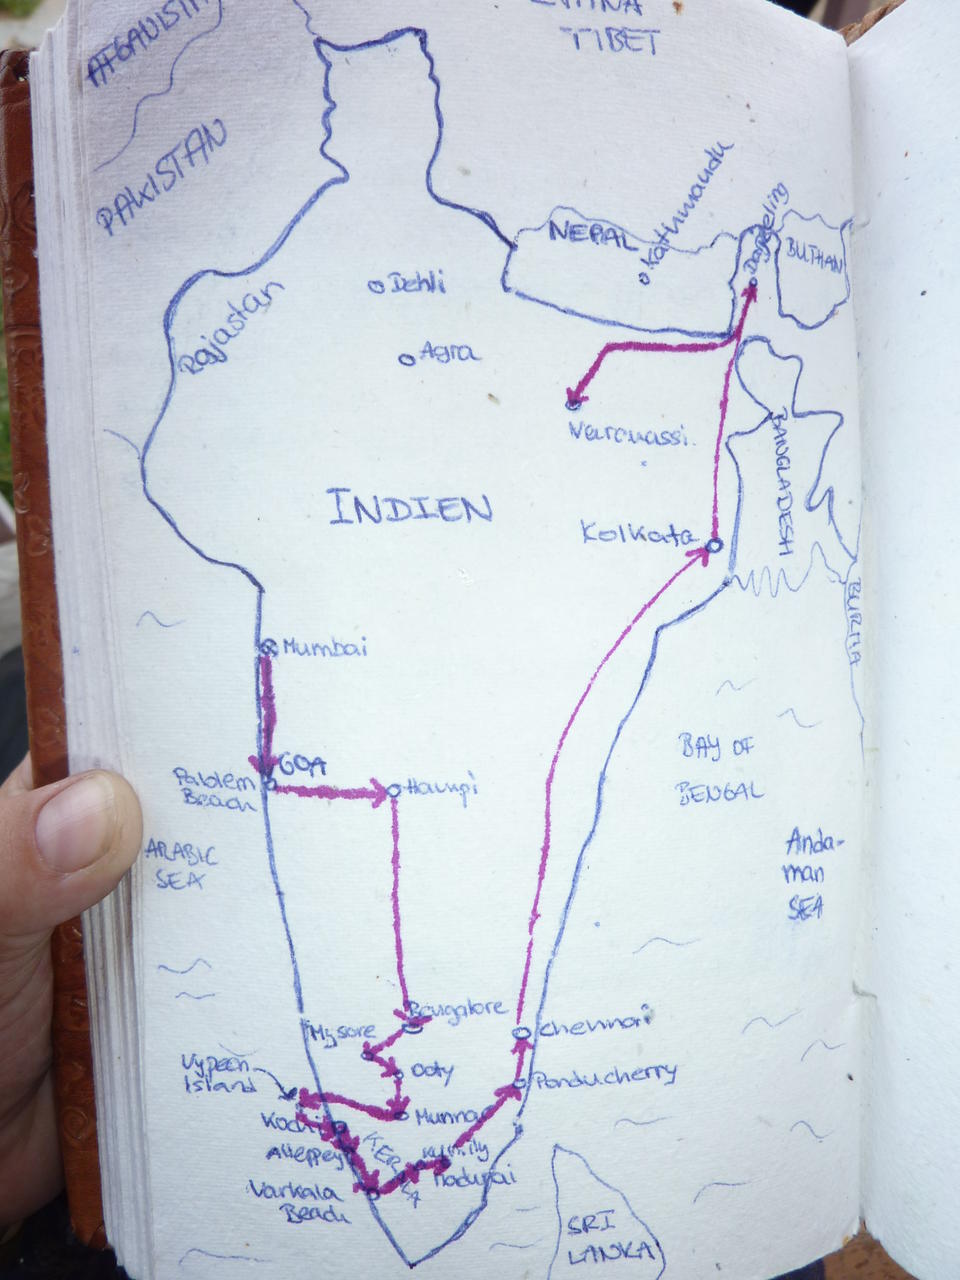 CHINA
TIBET
AFGANISTAN
PAKISTAN
NEPAL
Kathmandu
Darjeeling
BUTHAN
Dehli
Rajastan
Agra
Varanassi.
BANGLADESH
INDIEN
Kolkata
BURMA
Mumbai
BAY OF
BENGAL
GOA
Palolem
Beach
Hampi
ARABIC
SEA
Anda-
man
SEA
Bangalore
Mysore
Chennai
Ooty
Vypeen
Island
Ponducherry
Munnar
Kochi
Alleppey
KERALA
Kumily
Madurai
Varkala
Beach
SRI
LANKA